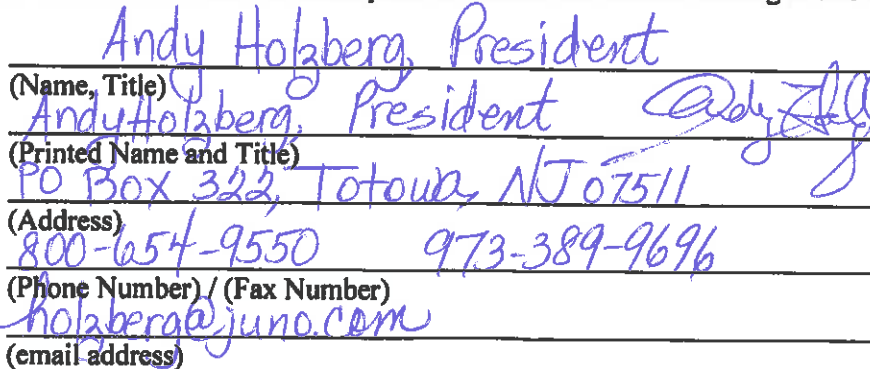 Andy Holzberg, President
(Name, Title)
Andy Holzberg, President
(Printed Name and Title)
PO Box 322, Totowa, NJ 07511
(Address)
800-654-9550 973-389-9696
(Phone Number) / (Fax Number)
holzberg@juno.com
(email address)